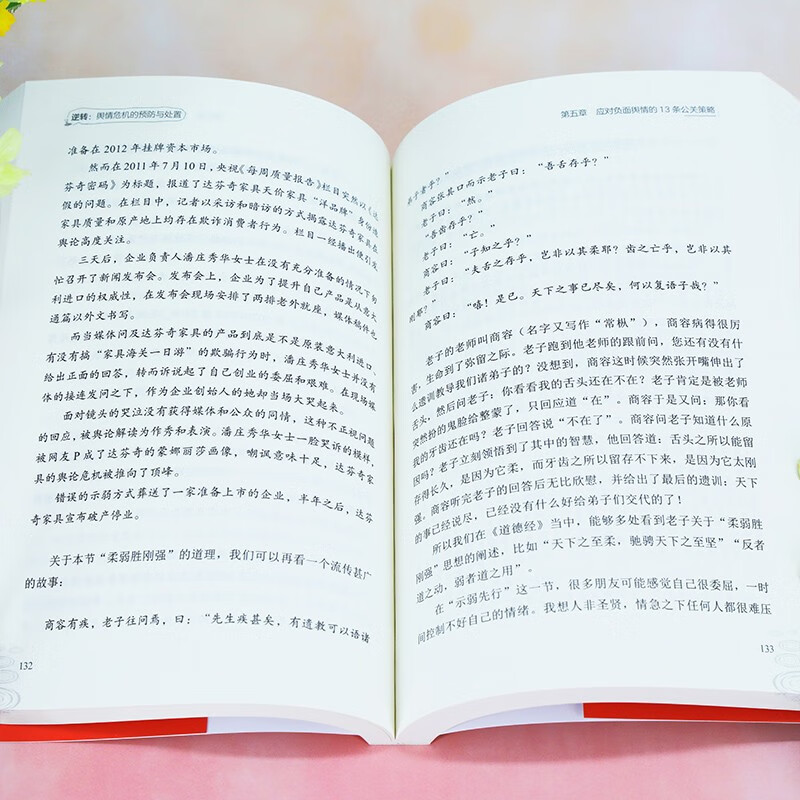 逆转：舆情危机的预防与处置
准备在 2012 年挂牌资本市场。
然而在 2011 年 7 月 10 日，央视《每周质量报告》栏目突然以《达
芬奇密码》为标题，报道了达芬奇家具天价家具“洋品牌”身份造
假的问题。在栏目中，记者以采访和暗访的方式揭露达芬奇家具在
家具质量和原产地上均存在欺诈消费者行为。栏目一经播出便引发
舆论高度关注。
三天后，企业负责人潘庄秀华女士在没有充分准备的情况下匆
忙召开了新闻发布会。发布会上，企业为了提升自己产品是从意大
利进口的权威性，在发布会现场安排了两排老外就座，媒体稿件也
通篇以外文书写。
而当媒体问及达芬奇家具的产品到底是不是原装意大利进口，
有没有搞“家具海关一日游”的欺骗行为时，潘庄秀华女士并没有
给出正面的回答，转而诉说起了自己创业的委屈和艰难。在现场媒
体的接连发问之下，作为企业创始人的她却当场大哭起来。
面对镜头的哭泣没有获得媒体和公众的同情，这种不正视问题
的回应，被舆论解读为作秀和表演。潘庄秀华女士一脸哭诉的模样，
被网友 P 成了达芬奇的蒙娜丽莎画像，嘲讽意味十足，达芬奇家
具的舆论危机被推向了顶峰。
错误的示弱方式葬送了一家准备上市的企业，半年之后，达芬
奇家具宣布破产停业。
关于本节“柔弱胜刚强”的道理，我们可以再看一个流传甚广
的故事：
商容有疾，老子往问焉，曰：“先生疾甚矣，有遗教可以语诸
132
第五章 应对负面舆情的 13 条公关策略
弟子者乎？”
商容张其口而示老子曰：“吾舌存乎？”
老子曰：“然。”
“吾齿存乎？”
老子曰：“亡。”
商容曰：“子知之乎？”
老子曰：“夫舌之存乎，岂非以其柔耶？齿之亡乎，岂非以其
刚耶？”
商容曰：“嘻！是已。天下之事已尽矣，何以复语子哉？”
老子的老师叫商容（名字又写作“常枞”），商容病得很厉
害，生命到了弥留之际。老子跑到他老师的跟前问，您还有没有什
么遗训教导我们诸弟子的？没想到，商容这时候突然张开嘴伸出了
舌头，然后问老子：你看看我的舌头还在不在？老子肯定是被老师
突然扮的鬼脸给整蒙了，只回应道“在”。商容于是又问：那你看
我的牙齿还在吗？老子回答说“不在了”。商容问老子知道什么原
因吗？老子立刻领悟到了其中的智慧，他回答道：舌头之所以能留
存得长久，是因为它柔，而牙齿之所以留存不下来，是因为它太刚
强。商容听完老子的回答后无比欣慰，并给出了最后的遗训：天下
的事已经说尽，已经没有什么好给弟子们交代的了！
所以我们在《道德经》当中，能够多处看到老子关于“柔弱胜
刚强”思想的阐述，比如“天下之至柔，驰骋天下之至坚”“反者
道之动，弱者道之用”。
在“示弱先行”这一节，很多朋友可能感觉自己很委屈，一时
间控制不好自己的情绪。我想人非圣贤，情急之下任何人都很难压
133